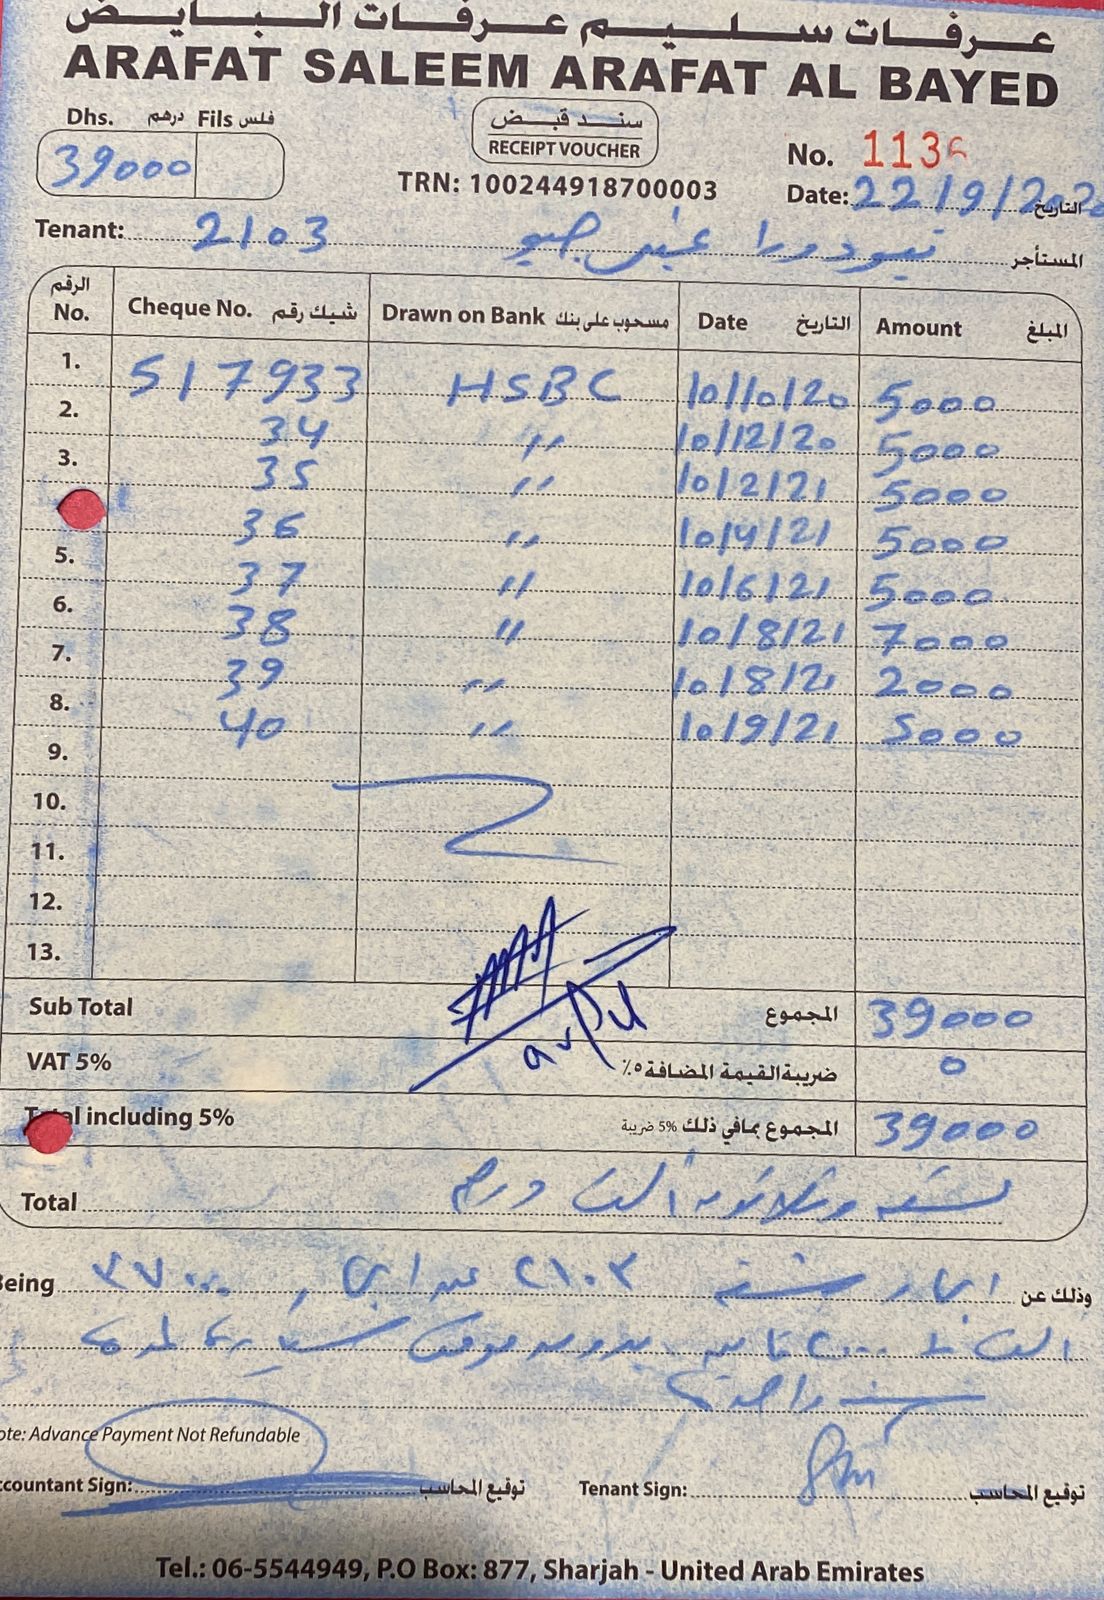 عرفات سليم عرفات البايض
ARAFAT SALEEM ARAFAT AL BAYED
Dhs. درهم Fils فلس
39000
سند قبض
RECEIPT VOUCHER
No. 1136
TRN: 100244918700003
Date: 22/9/2020 التاريخ
Tenant: 2103 المستأجر
الرقم No. Cheque No. شيك رقم Drawn on Bank مسحوب على بنك Date التاريخ Amount المبلغ
1. 517933 HSBC 10/10/20 5000
2. 34 〃 10/12/20 5000
3. 35 〃 10/2/21 5000
36 〃 10/4/21 5000
5. 37 〃 10/6/21 5000
6. 38 〃 10/8/21 7000
7. 39 〃 10/8/21 2000
8. 40 〃 10/9/21 5000
9.
10.
11.
12.
13.
Sub Total المجموع 39000
VAT 5% ضريبة القيمة المضافة ٥٪ 0
Total including 5% المجموع بمافي ذلك 5% ضريبة 39000
Total الف درهم
Being ٢١٠٣ ٣٧٠٠٠ وذلك عن
٢٠٠٠
سنة واحدة
ote: Advance Payment Not Refundable
ccountant Sign: توقيع المحاسب Tenant Sign: توقيع المحاسب
Tel.: 06-5544949, P.O Box: 877, Sharjah - United Arab Emirates